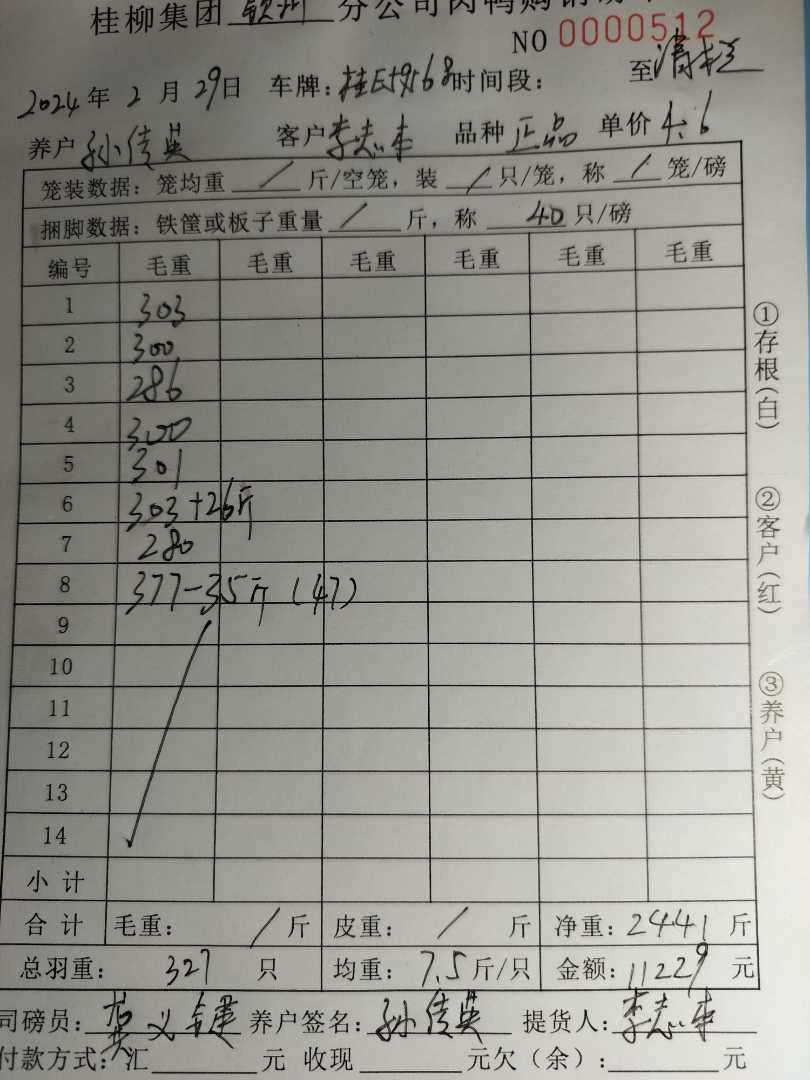 桂柳集团 钦州 分公司肉鸭购销
NO 0000512
2024年2月29日 车牌:桂E59568 时间段: 至 清
养户 孙传英 客户 李志来 品种 正品 单价 4.6
笼装数据:笼均重 / 斤/空笼,装 / 只/笼,称 / 笼/磅
捆脚数据:铁筐或板子重量 / 斤,称 40 只/磅
编号 毛重 毛重 毛重 毛重 毛重 毛重
1 303
2 300
3 286
4 300
5 301
6 303+26斤
7 280
8 377-35斤(47)
9
10
11
12
13
14
小计
合计 毛重: / 斤 皮重: / 斤 净重:2441 斤
总羽重: 327 只 均重: 7.5 斤/只 金额:11229 元
司磅员: 义 养户签名: 孙传英 提货人: 李志来
付款方式:汇 元 收现 元欠(余): 元
①存根(白)
②客户(红)
③养户(黄)